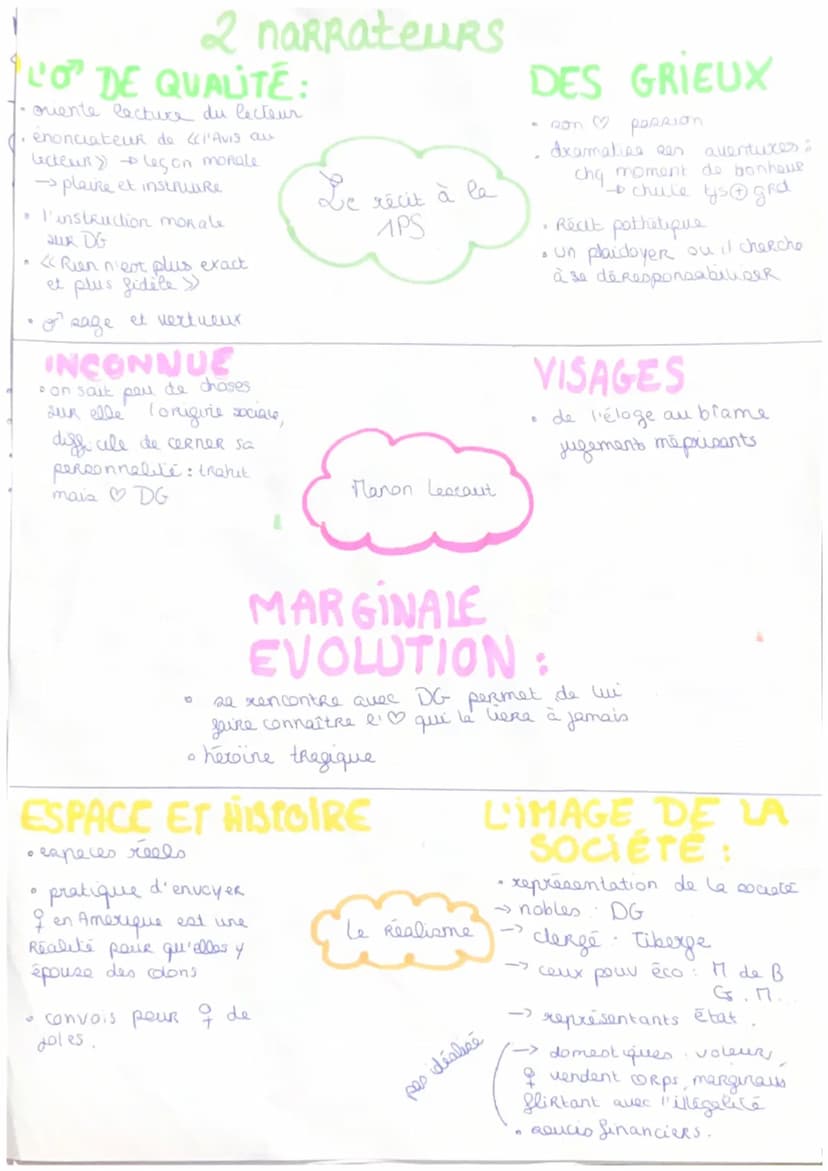 2 NARRATEURS
L'♂ DE QUALITÉ :
• oriente lecture du lecteur
• énonciateur de <<l'Avis au
lecteur>> → leçon morale
→ plaire et instruire
• l'instruction morale
sur DG
• << Rien n'est plus exact
et plus fidèle >>
• ♂ sage et vertueux
Le récit à la
1PS
DES GRIEUX
• son ♡ passion
• dramatise ses aventures :
chq moment de bonheur
→ chute tjs ⊕ grd
• Récit pathétique
• un plaidoyer ou il cherche
à se déresponsabiliser
INCONNUE
• on sait peu de choses
sur elle (origine sociale,
difficile de cerner sa
personnalité : trahit
mais ♡ DG
Manon Lescaut
VISAGES
• de l'éloge au blâme
jugements méprisants
MARGINALE
EVOLUTION :
• sa rencontre avec DG permet de lui
faire connaître l'♡ qui la liera à jamais
• héroïne tragique
ESPACE ET HISTOIRE
• espaces réels
• pratique d'envoyer
♀ en Amérique est une
Réalité pour qu'elles y
épouse des colons
• convois pour ♀ de
joies.
Le Réalisme
L'IMAGE DE LA
SOCIÉTÉ :
• représentation de la société
→ nobles : DG
→ clergé : Tiberge
→ ceux pouv éco : M de B
G. M...
→ représentants État.
pas idéalisé
→ domestiques, voleurs,
♀ vendent corps, marginaux
flirtant avec l'illégalité
• soucis financiers.